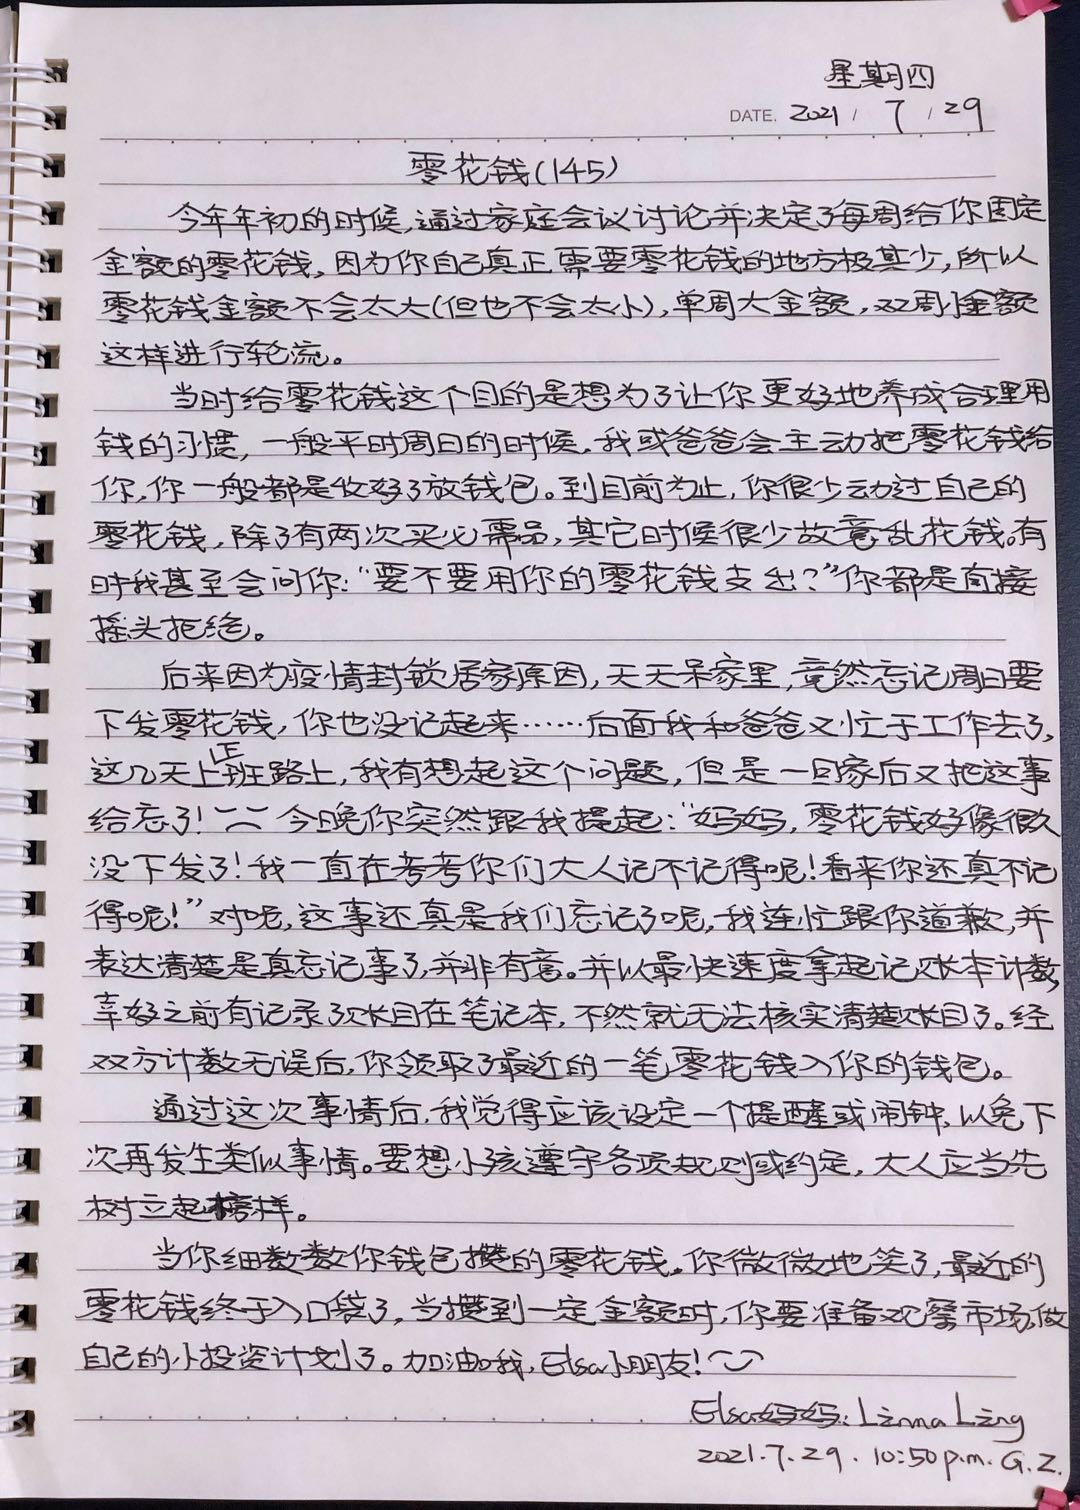 星期四
DATE. 2021 / 7 / 29
零花钱(145)
今年年初的时候,通过家庭会议讨论并决定了每周给你固定
金额的零花钱,因为你自己真正需要零花钱的地方极其少,所以
零花钱金额不会太大(但也不会太小),单周大金额,双周小金额
这样进行轮流。
当时给零花钱这个目的是想为了让你更好地养成合理用
钱的习惯,一般平时周日的时候,我或爸爸会主动把零花钱给
你,你一般都是收好了放钱包。到目前为止,你很少动过自己的
零花钱,除了有两次买必需品,其它时候很少故意乱花钱。有
时我甚至会问你:“要不要用你的零花钱支出?”你都是直接
摇头拒绝。
后来因为疫情封锁居家原因,天天呆家里,竟然忘记周日要
下发零花钱,你也没记起来……后面我和爸爸又忙于工作去了,
这几天上正班路上,我有想起这个问题,但是一回家后又把这事
给忘了! 今晚你突然跟我提起:“妈妈,零花钱好像很久
没下发了!我一直在考考你们大人记不记得呢!看来你还真不记
得呢!”对呢,这事还真是我们忘记了呢,我连忙跟你道歉,并
表达清楚是真忘记事了,并非有意。并以最快速度拿起记账本计数,
幸好之前有记录了账目在笔记本,不然就无法核实清楚账目了。经
双方计数无误后,你领取了最近的一笔零花钱入你的钱包。
通过这次事情后,我觉得应该设定一个提醒或闹钟,以免下
次再发生类似事情。要想小孩遵守各项规则或约定,大人应当先
树立起榜样。
当你细数数你钱包攒的零花钱,你微微地笑了,最近的
零花钱终于入口袋了,当攒到一定金额时,你要准备观察市场,做
自己的小投资计划了。加油哦,Elsa小朋友!
Elsa妈妈: Linna Ling
2021.7.29. 10:50p.m. G.Z.